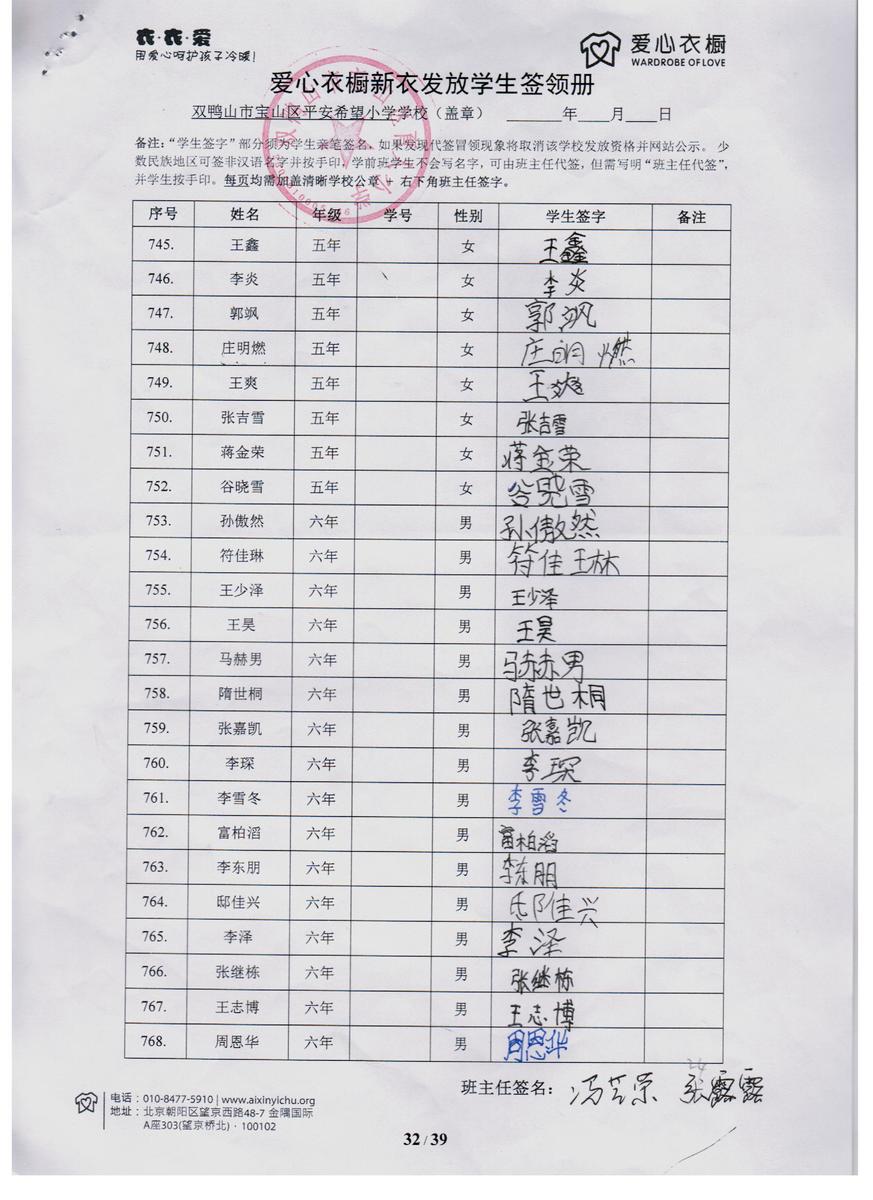 衣·衣·爱
用爱心呵护孩子冷暖!
爱心衣橱
WARDROBE OF LOVE
爱心衣橱新衣发放学生签领册
双鸭山市宝山区平安希望小学学校（盖章） ______年____月____日
备注：“学生签字”部分须为学生亲笔签名，如果发现代签冒领现象将取消该学校发放资格并网站公示。 少
数民族地区可签非汉语名字并按手印，学前班学生不会写名字，可由班主任代签，但需写明“班主任代签”，
并学生按手印。每页均需加盖清晰学校公章 + 右下角班主任签字。
序号 姓名 年级 学号 性别 学生签字 备注
745. 王鑫 五年 女 王鑫
746. 李炎 五年 女 李炎
747. 郭飒 五年 女 郭飒
748. 庄明燃 五年 女 庄明燃
749. 王爽 五年 女 王爽
750. 张吉雪 五年 女 张吉雪
751. 蒋金荣 五年 女 蒋金荣
752. 谷晓雪 五年 女 谷晓雪
753. 孙傲然 六年 男 孙傲然
754. 符佳琳 六年 男 符佳琳
755. 王少泽 六年 男 王少泽
756. 王昊 六年 男 王昊
757. 马赫男 六年 男 马赫男
758. 隋世桐 六年 男 隋世桐
759. 张嘉凯 六年 男 张嘉凯
760. 李琛 六年 男 李琛
761. 李雪冬 六年 男 李雪冬
762. 富柏滔 六年 男 富柏滔
763. 李东朋 六年 男 李东朋
764. 邸佳兴 六年 男 邸佳兴
765. 李泽 六年 男 李泽
766. 张继栋 六年 男 张继栋
767. 王志博 六年 男 王志博
768. 周恩华 六年 男 周恩华
24
班主任签名： 冯芸荣 张露露
电话：010-8477-5910 | www.aixinyichu.org
地址：北京朝阳区望京西路48-7 金隅国际
A座303(望京桥北) · 100102
32 / 39